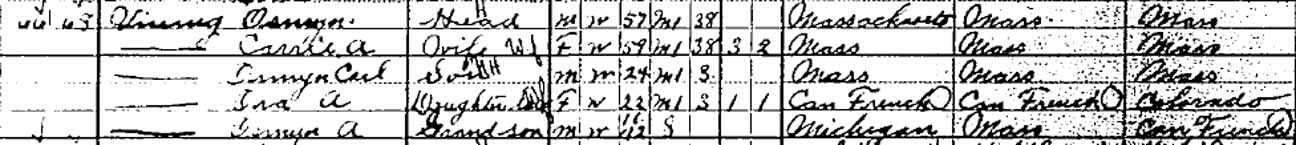 Osmyn Head m w 57 m1 38 Massachusetts Mass Mass
Carrie A Wife F w 59 m1 38 3 2 Mass Mass Mass
Osmyn Carl Son m w 24 m1 3 Mass Mass Mass
Ina A Daughter F w 22 m1 3 1 1 Can French Can French Colorado
Osmyn A Grandson m w S Michigan Mass Can French